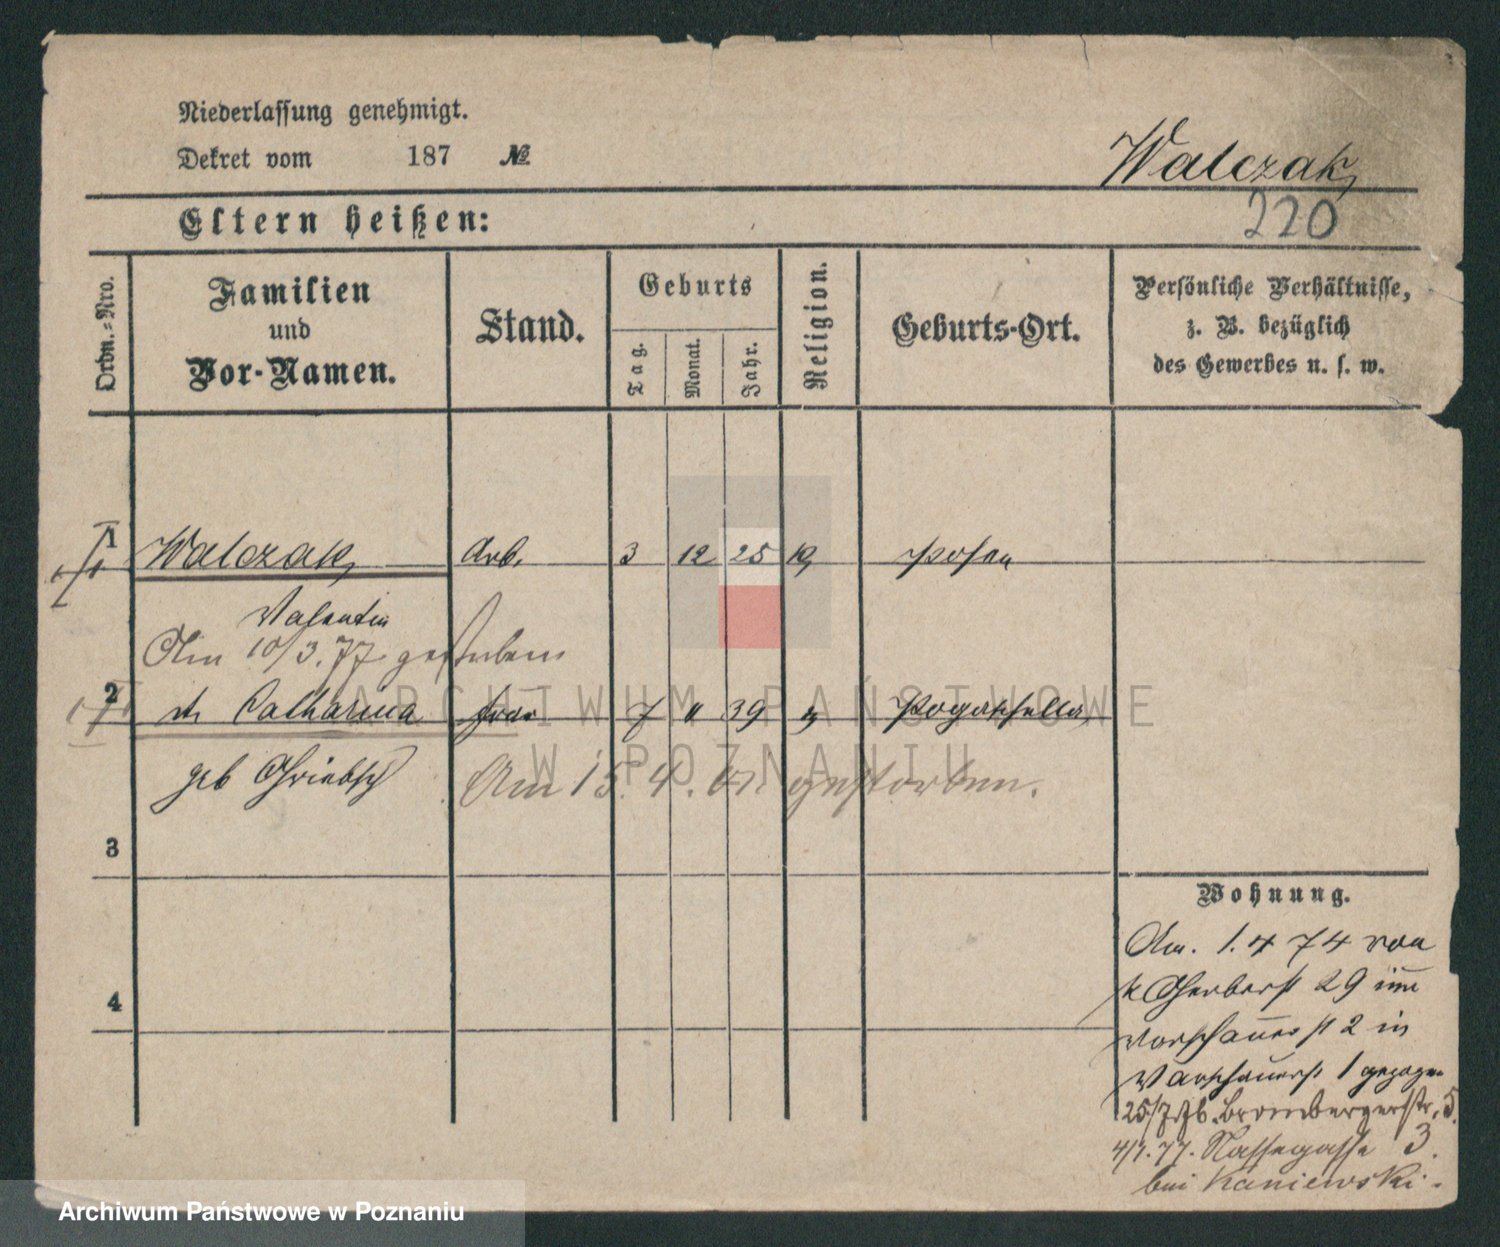 Niederlassung genehmigt.
Dekret vom 187 №
Walczak
220
Eltern heißen:
Ordn.=Nro.
Familien
und
Vor-Namen.
Stand.
Geburts
Tag.
Monat.
Jahr.
Religion.
Geburts-Ort.
Persönliche Verhältnisse,
z. B. bezüglich
des Gewerbes u. s. w.
1 Walczak Arb. 3 12 25 k Posen
Valentin
Am 10/3.77 gestorben
2 Catharina Frau 7 " 39
geb
Am 15. 4. gestorben.
3
4
Wohnung.
Am. 1. 4 74 von
Gerberst 29 in
Warschauerst 2 in
Warschauerst 1 gezogen
25/7.76. Brombergerstr. 5.
4/1.77. Nassegasse 3.
bei Kaniewski.
ARCHIWUM PAŃSTWOWE
W POZNANIU
Archiwum Państwowe w Poznaniu